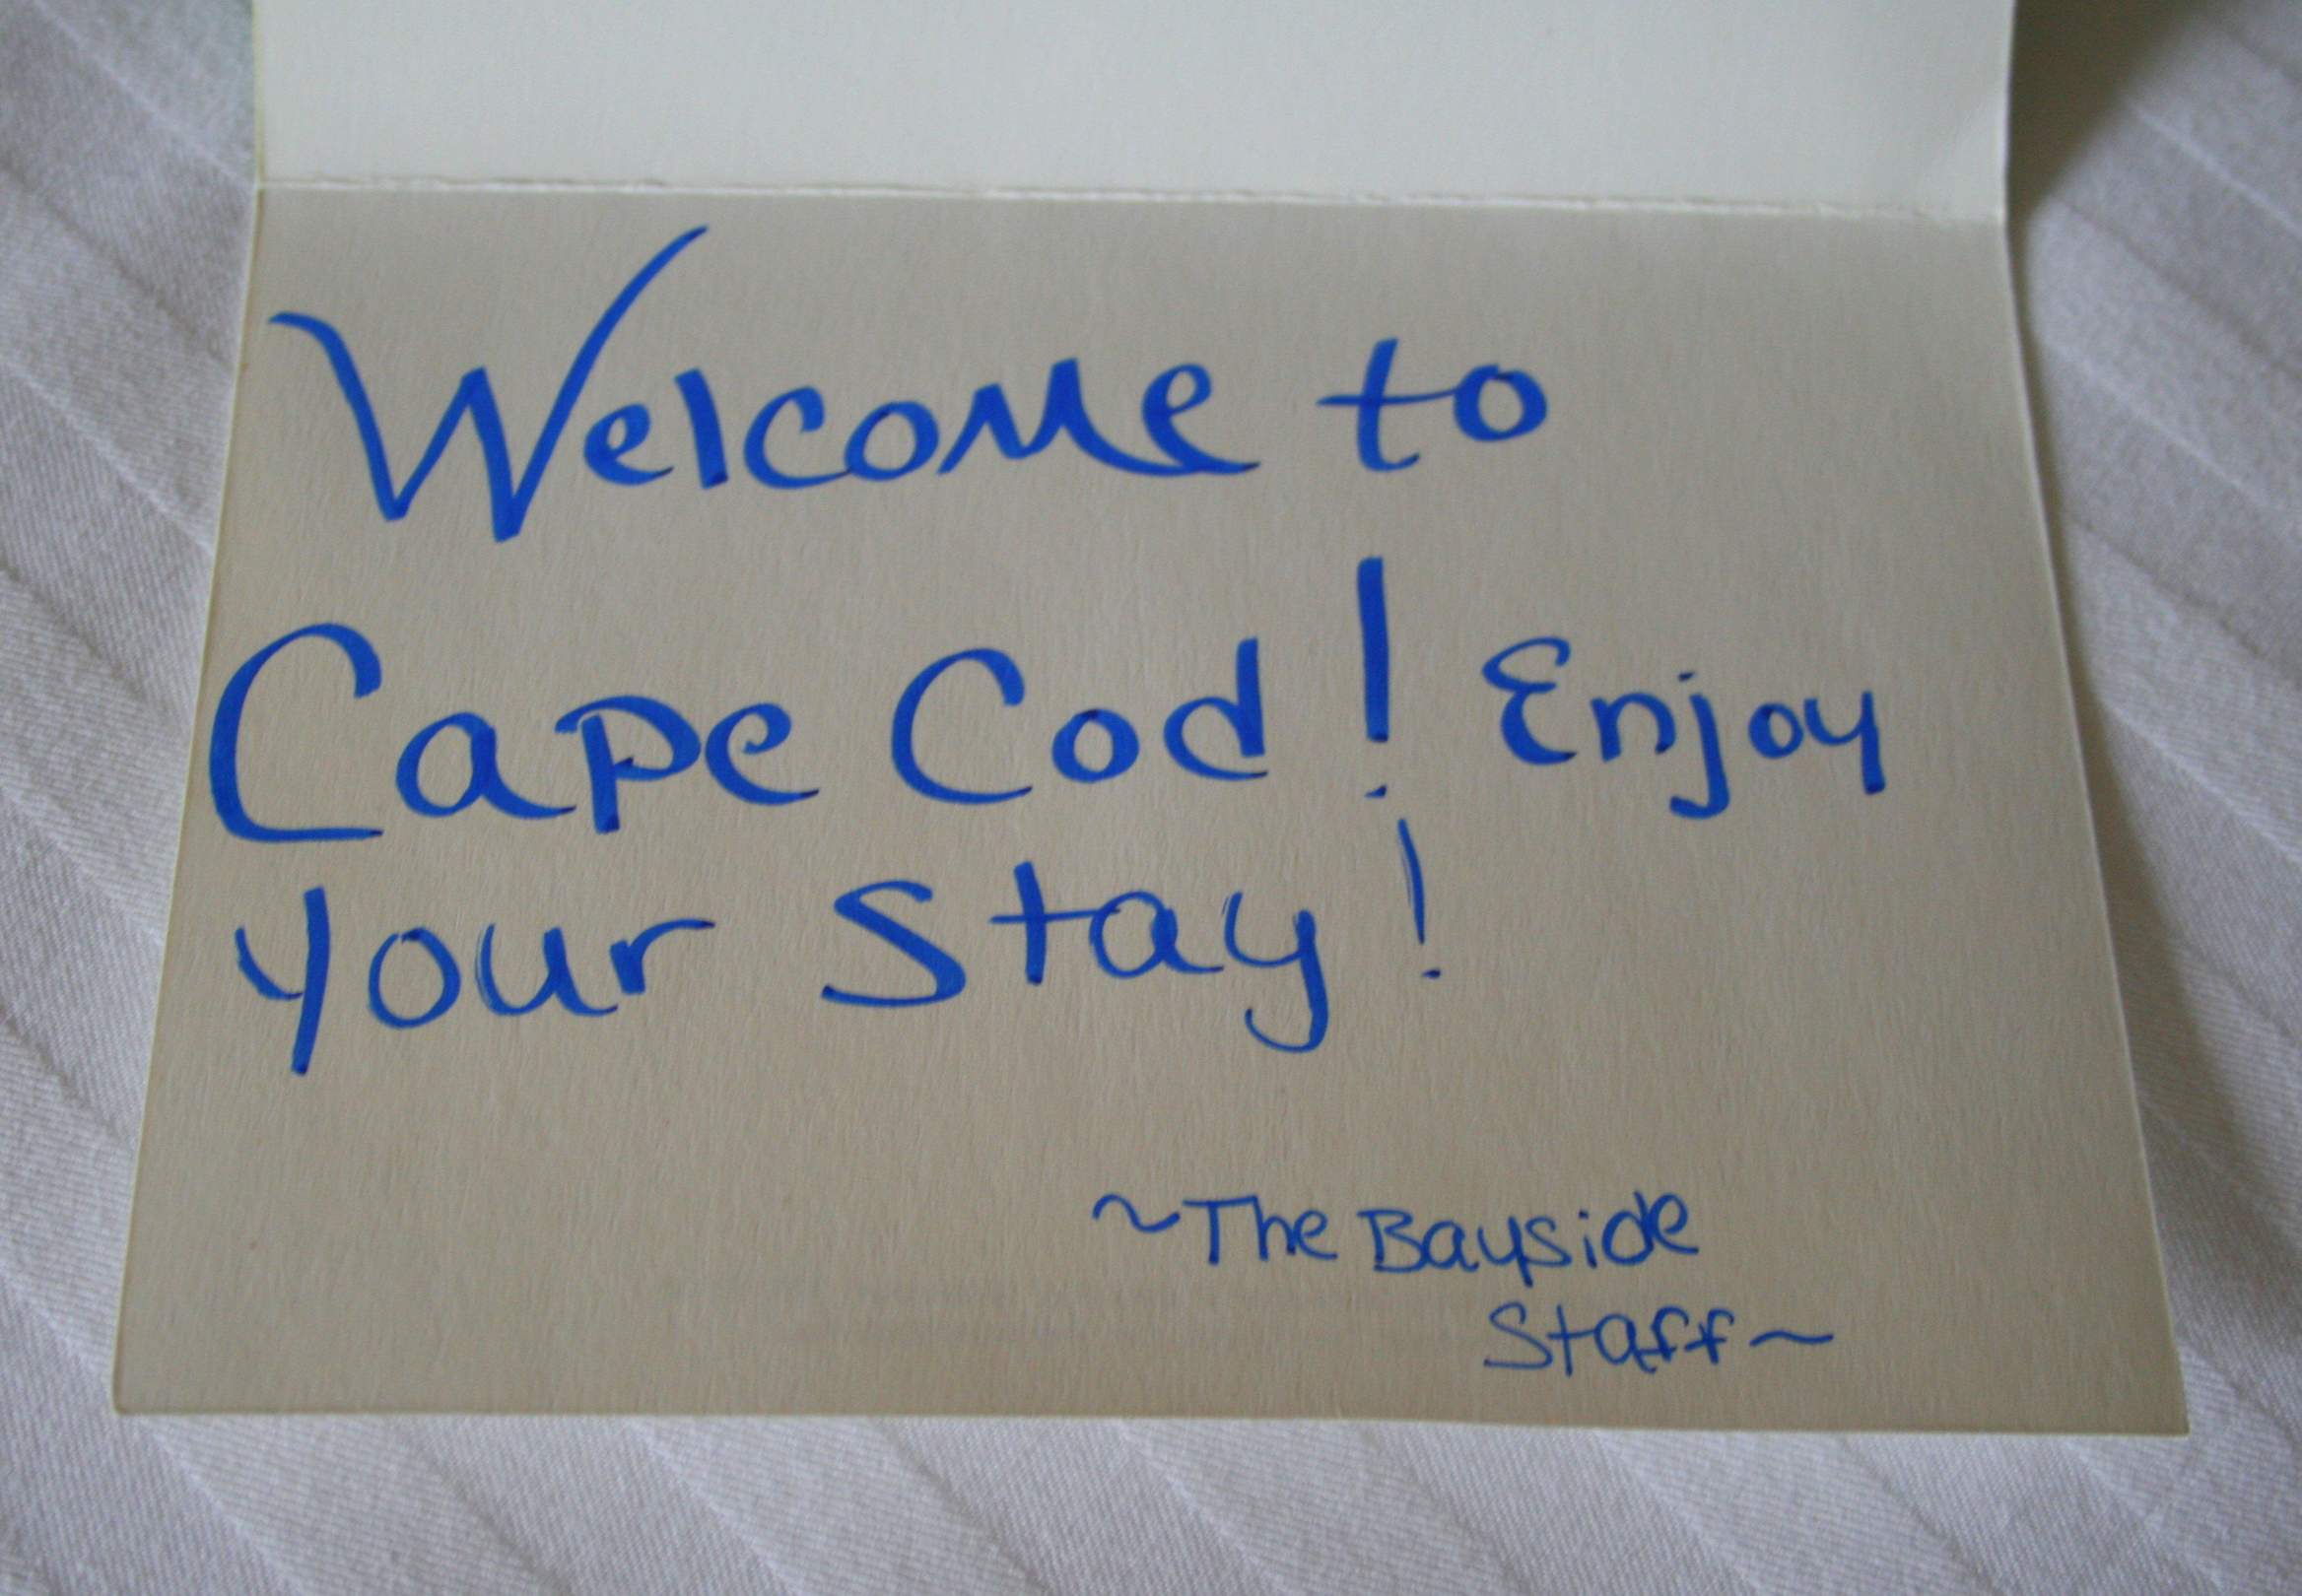 Welcome to
Cape Cod! Enjoy
your Stay!
~The Bayside
Staff~